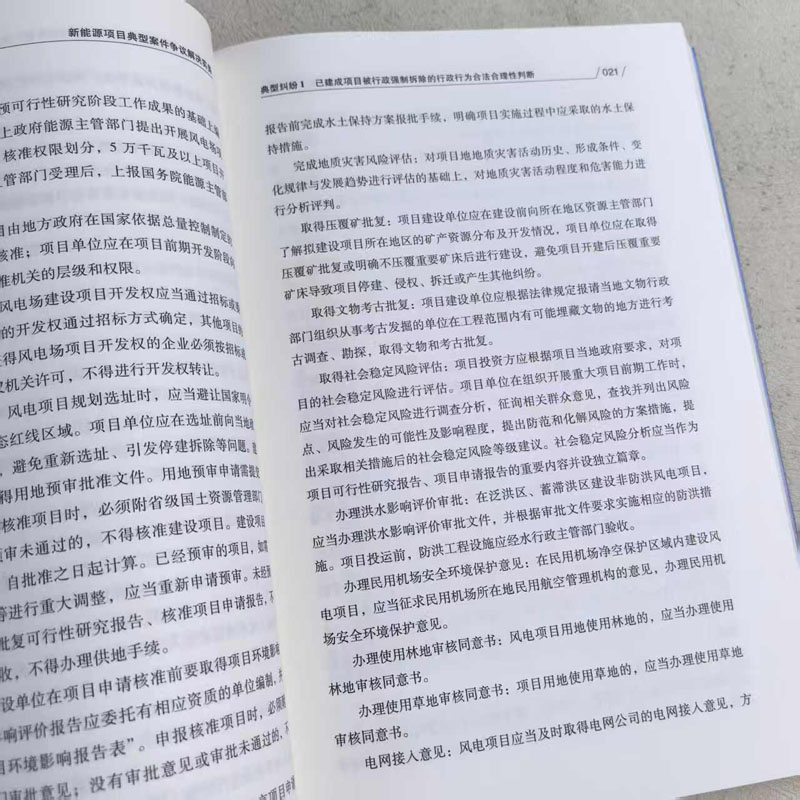 新能源项目典型案件争议解决
预可行性研究阶段工作成果的基础上
上政府能源主管部门提出开展风电场项
核准权限划分，5 万千瓦及以上项目
管部门受理后，上报国务院能源主管部
目由地方政府在国家依据总量控制制定的
核准；项目单位应在项目前期开发阶段
准机关的层级和权限。
风电场建设项目开发权应当通过招标或
的开发权通过招标方式确定，其他项目的
得风电场项目开发权的企业必须按招标
机关许可，不得进行开发权转让。
风电项目规划选址时，应当避让国家
态红线区域。项目单位应在选址前向当地
，避免重新选址、引发停建拆除等问题。
得用地预审批准文件。用地预审申请需
核准项目时，必须附省级国土资源管理部门
预审未通过的，不得核准建设项目。建设项目
自批准之日起计算。已经预审的项目，如
等进行重大调整，应当重新申请预审。未经
批复可行性研究报告、核准项目申请报告，不
收，不得办理供地手续。
设单位在项目申请核准前要取得项目环境影
响评价报告应委托有相应资质的单位编制，
环境影响报告表”。申报核准项目时，必须
审批意见；没有审批意见或审批未通过的，不
项目申
典型纠纷 1 已建成项目被行政强制拆除的行政行为合法合理性判断 021
报告前完成水土保持方案报批手续，明确项目实施过程中应采取的水土保
持措施。
完成地质灾害风险评估：对项目地地质灾害活动历史、形成条件、变
化规律与发展趋势进行评估的基础上，对地质灾害活动程度和危害能力进
行分析评判。
取得压覆矿批复：项目建设单位应在建设前向所在地区资源主管部门
了解拟建设项目所在地区的矿产资源分布及开发情况，项目单位应在取得
压覆矿批复或明确不压覆重要矿床后进行建设，避免项目开建后压覆重要
矿床导致项目停建、侵权、拆迁或产生其他纠纷。
取得文物考古批复：项目建设单位应根据法律规定报请当地文物行政
部门组织从事考古发掘的单位在工程范围内有可能埋藏文物的地方进行考
古调查、勘探，取得文物和考古批复。
取得社会稳定风险评估：项目投资方应根据项目当地政府要求，对项
目的社会稳定风险进行评估。项目单位在组织开展重大项目前期工作时，
应当对社会稳定风险进行调查分析，征询相关群众意见，查找并列出风险
点、风险发生的可能性及影响程度，提出防范和化解风险的方案措施，提
出采取相关措施后的社会稳定风险等级建议。社会稳定风险分析应当作为
项目可行性研究报告、项目申请报告的重要内容并设独立篇章。
办理洪水影响评价审批：在泛洪区、蓄滞洪区建设非防洪风电项目，
应当办理洪水影响评价审批文件，并根据审批文件要求实施相应的防洪措
施。项目投运前，防洪工程设施应经水行政主管部门验收。
办理民用机场安全环境保护意见：在民用机场净空保护区域内建设风
电项目，应当征求民用机场所在地民用航空管理机构的意见，办理民用机
场安全环境保护意见。
办理使用林地审核同意书：风电项目用地使用林地的，应当办理使用
林地审核同意书。
办理使用草地审核同意书：项目用地使用草地的，应当办理使用草地
审核同意书。
电网接入意见：风电项目应当及时取得电网公司的电网接入意见，方